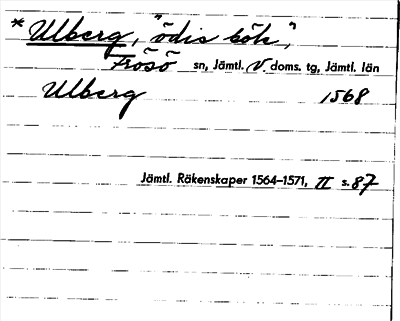 * Ulberg, "ödis böle",
Frösö sn, Jämtl. V. doms. tg, Jämtl. län
Ulberg 1568
Jämtl. Räkenskaper 1564–1571, II s. 87